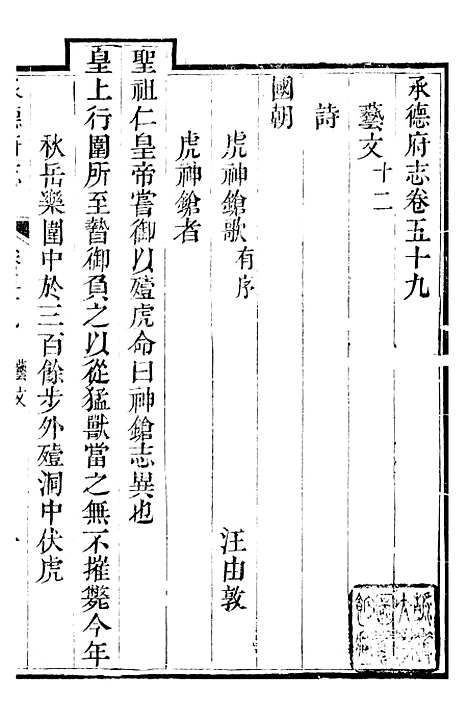 承德府志卷五十九
藝文十二
詩
國朝
虎神鎗歌有序 汪由敦
虎神鎗者
聖祖仁皇帝嘗御以殪虎命曰神鎗志異也
皇上行圍所至暬御負之以從猛獸當之無不摧斃今年
秋岳樂圍中於三百餘步外殪洞中伏虎
承德府志 藝文